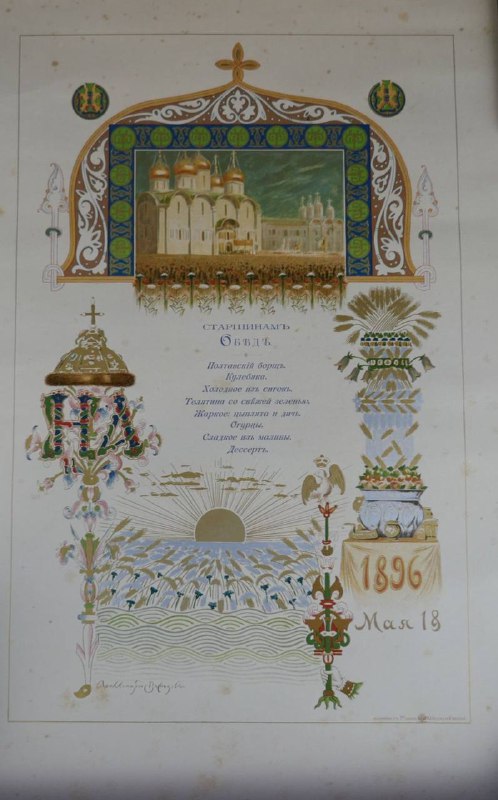 СТАРШИНАМЪ
ОБѢДЪ
Полтавскій борщъ.
Кулебяка.
Холодное изъ сиговъ.
Телятина со свѣжей зеленью.
Жаркое: цыплята и дичь.
Огурцы.
Сладкое изъ малины.
Дессертъ.
1896
Мая 18